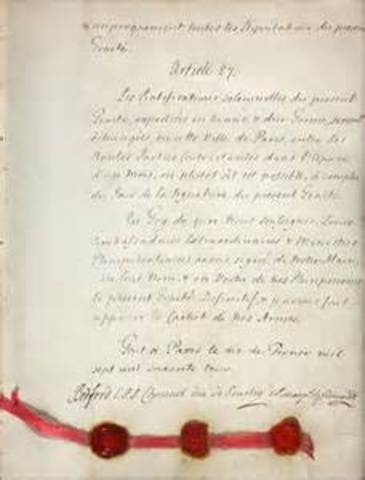 & engagement toutes les Stipulations du présent
Traité.
Article 27.
Les Ratifications solemnelles du présent
Traité, expediées en bonne & düe Forme, seront
échangées, en cette Ville de Paris, entre les
Hautes Parties contractantes dans l'Espace
d'un Mois, ou plutôt s'il est possible, à compter
du Jour de la Signature du présent Traité.
En Foy de quoi Nous soussignés Leurs
Ambassadeurs Extraordinaires & Ministres
Plenipotentiaires avons signé de Notre Main,
en leur Nom, & en Vertu de nos Pleinpouvoirs,
le présent Traité Definitif, & y avons fait
apposer le Cachet de Nos Armes.
Fait à Paris le dix de Fevrier mil
sept cent soixante trois.
Bedford C.P.S. Choiseul duc de Praslin el Marqs de Grimaldi